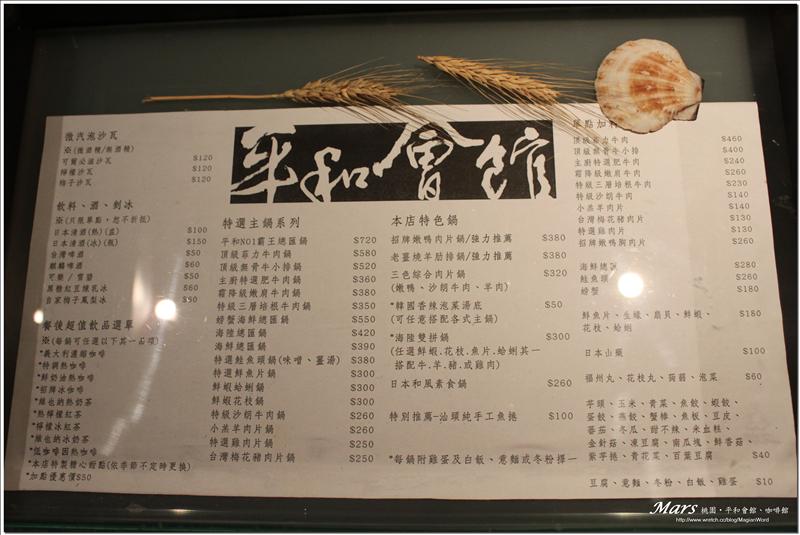 平和會館
微汽泡沙瓦
※(微酒精/無酒精)
可爾必滋沙瓦 $120
檸檬沙瓦 $120
梅子沙瓦 $120
飲料、酒、剉冰
※(只限單點,恕不折抵)
日本清酒(熱)(壺) $100
日本清酒(冰)(瓶) $150
台灣啤酒 $50
麒麟啤酒 $60
可樂/雪碧 $50
黑糖紅豆煉乳冰
自家梅子鳳梨冰 $50
餐後超值飲品選單
※(每鍋可任選以下其一品項)
*義大利濃縮咖啡
*特調熱咖啡
*鮮奶油熱咖啡
*招牌冰咖啡
*維也納熱奶茶
*熱檸檬紅茶
*檸檬冰紅茶
*維也納冰奶茶
*低咖啡因熱咖啡
*本店特製糖心甜點(依季節不定時更換)
*加點優惠價$50
特選主鍋系列
平和NO1霸王總匯鍋 $720
頂級菲力牛肉鍋 $580
頂級無骨牛小排鍋 $520
主廚特選肥牛肉鍋 $360
霜降級嫩肩牛肉鍋 $380
特級三層培根牛肉鍋 $350
螃蟹海鮮總匯鍋 $550
海陸總匯鍋 $420
海鮮總匯鍋 $390
特選鮭魚頭鍋(味噌、薑湯) $380
特選鮮魚片鍋 $300
鮮蝦蛤蜊鍋 $300
鮮蝦花枝鍋 $300
特級沙朗牛肉鍋 $260
小羔羊肉片鍋 $260
特選雞肉片鍋 $250
台灣梅花豬肉片鍋 $250
本店特色鍋
招牌嫩鴨肉片鍋/強力推薦 $380
老薑燒羊肋排鍋/強力推薦 $380
三色綜合肉片鍋 $320
(嫩鴨、沙朗牛肉、羊肉)
*韓國香辣泡菜湯底 $50
(可任意搭配各式主鍋)
*海陸雙拼鍋 $300
(任選鮮蝦.花枝.魚片.蛤蜊其一
搭配牛.羊.豬.或雞肉)
日本和風素食鍋 $260
特別推薦-汕頭純手工魚捲 $100
*每鍋附雞蛋及白飯、意麵或冬粉擇一
單點加料
頂級菲力牛肉 $460
頂級無骨牛小排 $400
主廚特選肥牛肉 $240
霜降級嫩肩牛肉 $260
特級三層培根牛肉 $230
特級沙朗牛肉 $140
小羔羊肉片 $140
台灣梅花豬肉片 $130
特選雞肉片 $130
招牌嫩鴨胸肉片 $260
海鮮總匯 $280
鮭魚頭 $260
螃蟹 $180
鮮魚片、生蠔、扇貝、鮮蝦、 $180
花枝、蛤蜊
日本山藥 $100
福州丸、花枝丸、蒟蒻、泡菜 $60
芋頭、玉米、青菜、魚餃、蝦餃、
蛋餃、燕餃、蟹棒、魚板、豆皮、
蕃茄、冬瓜、甜不辣、米血糕、
金針菇、凍豆腐、南瓜塊、鮮香菇、
紫芋捲、青花菜、百葉豆腐 $40
豆腐、意麵、冬粉、白飯、雞蛋 $10
Mars 桃園‧平和會館、咖啡館
http://www.wretch.cc/blog/MagianWord